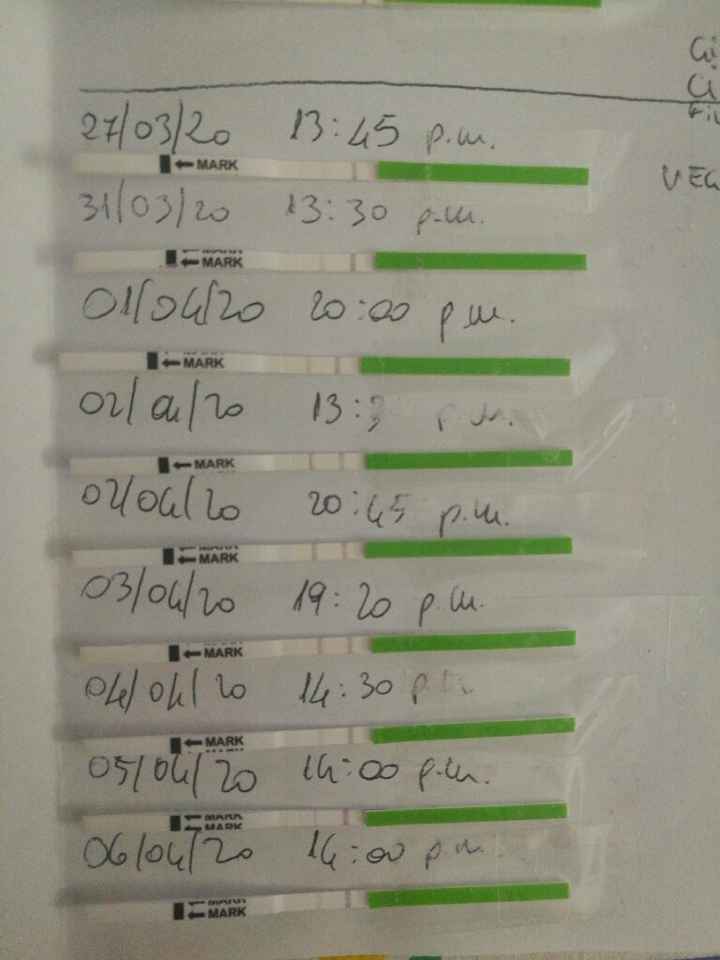 Ci
27/03/20 13:45 p.m.
MARK
VEG
31/03/20 13:30 p.m.
MARK
MARK
01/04/20 20:00 p.m.
MARK
02/04/20 13:3 p.m.
MARK
02/04/20 20:45 p.m.
MARK
MARK
03/04/20 19:20 p.m.
MARK
04/04/20 14:30 p.m.
MARK
MARK
05/04/20 14:00 p.m.
MARK
MARK
06/04/20 14:00 p.m.
MARK
MARK